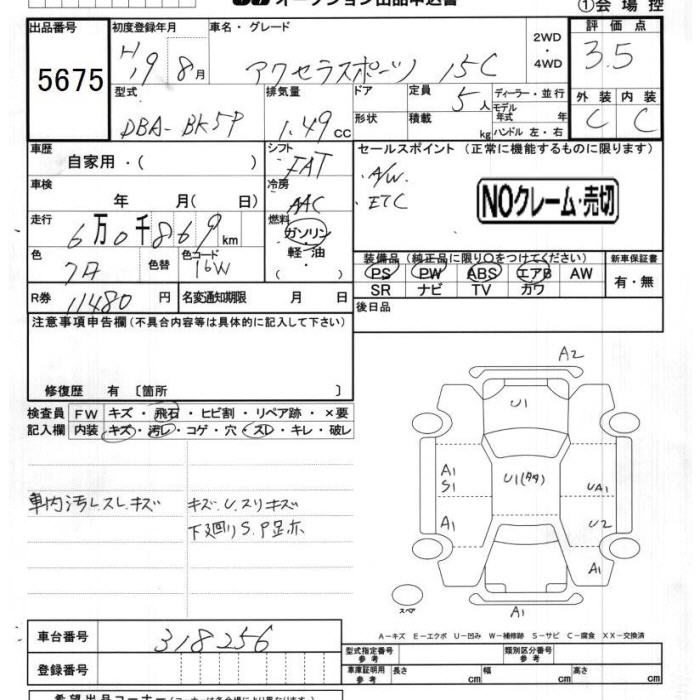 オークション出品申込書
①会場控
出品番号 初度登録年月 車名・グレード 2WD・4WD 評価点
5675 H19 8月 アクセラスポーツ 15C 3.5
型式 排気量 ドア 定員 5人 ディーラー・並行 外装 内装
DBA-BK5P 1.49cc 形状 積載 kg モデル年式 年 ハンドル 左・右 C C
車歴 シフト セールスポイント (正常に機能するものに限ります)
自家用・( ) FAT ・A/W.
車検 冷房 ・ETC NOクレーム・売切
年 月( 日) AAC
走行 燃料
6万0千869km ガソリン・軽油・( )
色 色替 色コード 装備品 (純正品に限り○をつけてください) 新車保証書
16W PS PW ABS エアB AW 有・無
SR ナビ TV カワ
R券 11480円 名変通知期限 月 日 後日品
注意事項申告欄 (不具合内容等は具体的に記入して下さい)
修復歴 有 〔箇所 〕
検査員 FW キズ・飛石・ヒビ割・リペア跡・×要
記入欄 内装 キズ・汚レ・コゲ・穴・スレ・キレ・破レ
A2
U1
A1 S1 U1 UA1
A1 U2
A1
A1
車内汚レスレ.キズ キズ.U.スリキズ
下廻りS.P
スペア
A-キズ E-エクボ U-凹み W-補修跡 S-サビ C-腐食 XX-交換済
車台番号 318256
型式指定番号 参考 類別区分番号 参考
登録番号 車庫証明用 参考 長さ cm 幅 cm 高さ cm
希望出品コーナー